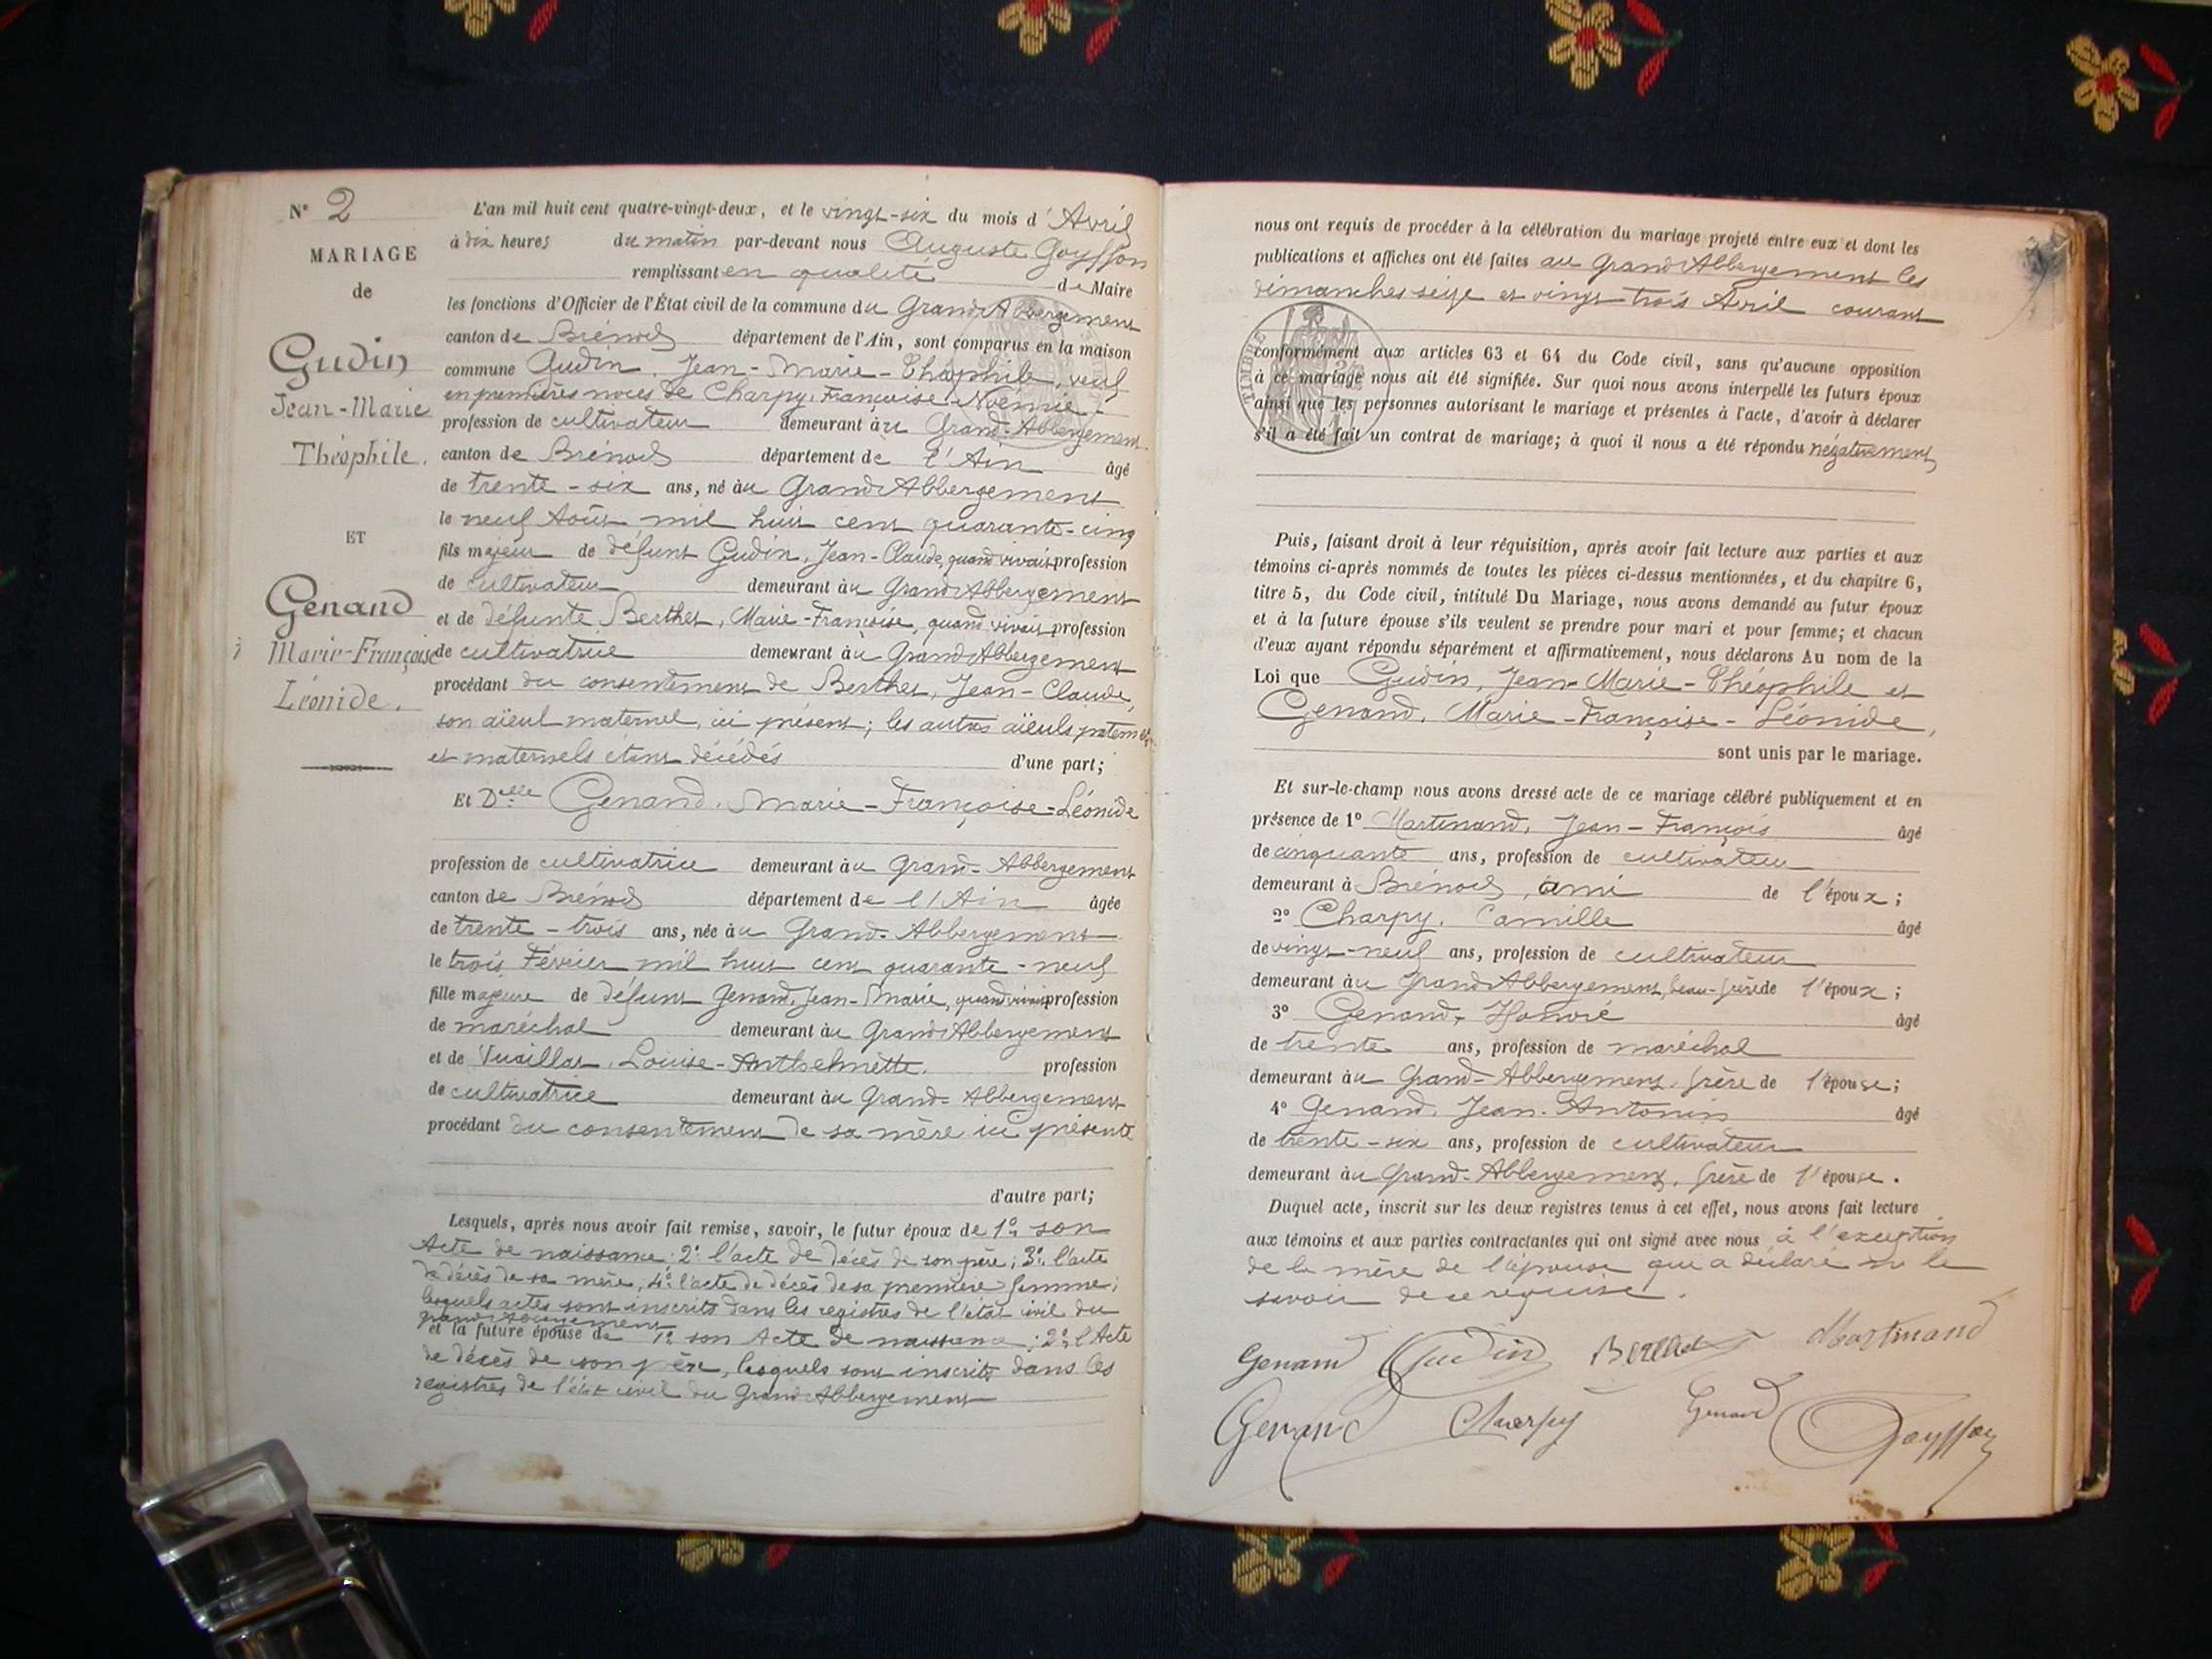 N° 2
MARIAGE
de
Gudin
Jean-Marie
Théophile.
ET
Genand
Marie-Françoise
Léonide.
L'an mil huit cent quatre-vingt-deux, et le vingt-six du mois d'Avril
à dix heures du matin par-devant nous Auguste Goyffon
remplissant en qualité de Maire
les fonctions d'Officier de l'État civil de la commune du Grand Abbergement
canton de Brénod département de l'Ain, sont comparus en la maison
commune Gudin, Jean-Marie-Théophile, veuf
en premières noces de Charpy, Françoise-Noémie
profession de cultivateur demeurant au Grand-Abbergement
canton de Brénod département de l'Ain âgé
de trente-six ans, né au Grand Abbergement
le neuf Août mil huit cent quarante-cinq
fils majeur de défunt Gudin, Jean-Claude, quand vivait profession
de cultivateur demeurant au Grand Abbergement
et de défunte Berthet, Marie-Françoise, quand vivait profession
de cultivatrice demeurant au Grand Abbergement
procédant du consentement de Berthet, Jean-Claude,
son aïeul maternel, ici présent; les autres aïeuls paternels
et maternels étant décédés d'une part;
Et Delle Genand, Marie-Françoise-Léonide
profession de cultivatrice demeurant au Grand-Abbergement
canton de Brénod département de l'Ain âgée
de trente-trois ans, née au Grand-Abbergement
le trois Février mil huit cent quarante-neuf
fille majeure de défunt Genand, Jean-Marie, quand vivait profession
de maréchal demeurant au Grand Abbergement
et de Vuaillat, Louise-Anthelmette. profession
de cultivatrice demeurant au Grand-Abbergement
procédant du consentement de sa mère ici présente
d'autre part;
Lesquels, après nous avoir fait remise, savoir, le futur époux de 1° son
Acte de naissance; 2° l'acte de décès de son père; 3° l'acte
de décès de sa mère, 4° l'acte de décès de sa première femme;
lesquels actes sont inscrits dans les registres de l'état civil du
Grand Abbergement
et la future épouse de 1° son Acte de naissance; 2° l'Acte
de décès de son père, lesquels sont inscrits dans les
registres de l'état civil du Grand Abbergement
nous ont requis de procéder à la célébration du mariage projeté entre eux et dont les
publications et affiches ont été faites au Grand Abbergement les
dimanches seize et vingt-trois Avril courant
TIMBRE
conformément aux articles 63 et 64 du Code civil, sans qu'aucune opposition
à ce mariage nous ait été signifiée. Sur quoi nous avons interpellé les futurs époux
ainsi que les personnes autorisant le mariage et présentes à l'acte, d'avoir à déclarer
s'il a été fait un contrat de mariage; à quoi il nous a été répondu négativement
Puis, faisant droit à leur réquisition, après avoir fait lecture aux parties et aux
témoins ci-après nommés de toutes les pièces ci-dessus mentionnées, et du chapitre 6,
titre 5, du Code civil, intitulé Du Mariage, nous avons demandé au futur époux
et à la future épouse s'ils veulent se prendre pour mari et pour femme; et chacun
d'eux ayant répondu séparément et affirmativement, nous déclarons Au nom de la
Loi que Gudin, Jean-Marie-Théophile et
Genand, Marie-Françoise-Léonide,
sont unis par le mariage.
Et sur-le-champ nous avons dressé acte de ce mariage célébré publiquement et en
présence de 1° Martinand, Jean-François âgé
de cinquante ans, profession de cultivateur
demeurant à Brénod, ami de l'époux;
2° Charpy, Camille âgé
de vingt-neuf ans, profession de cultivateur
demeurant au Grand Abbergement, beau-frère de l'époux;
3° Genand, Honoré âgé
de trente ans, profession de maréchal
demeurant au Grand-Abbergement, frère de l'épouse;
4° Genand, Jean-Antonin âgé
de trente-six ans, profession de cultivateur
demeurant au Grand-Abbergement, frère de l'épouse.
Duquel acte, inscrit sur les deux registres tenus à cet effet, nous avons fait lecture
aux témoins et aux parties contractantes qui ont signé avec nous à l'exception
de la mère de l'épouse qui a déclaré ne le
savoir de ce requise.
Genand Gudin Berthet Martinand
Genand Charpy Genand Goyffon